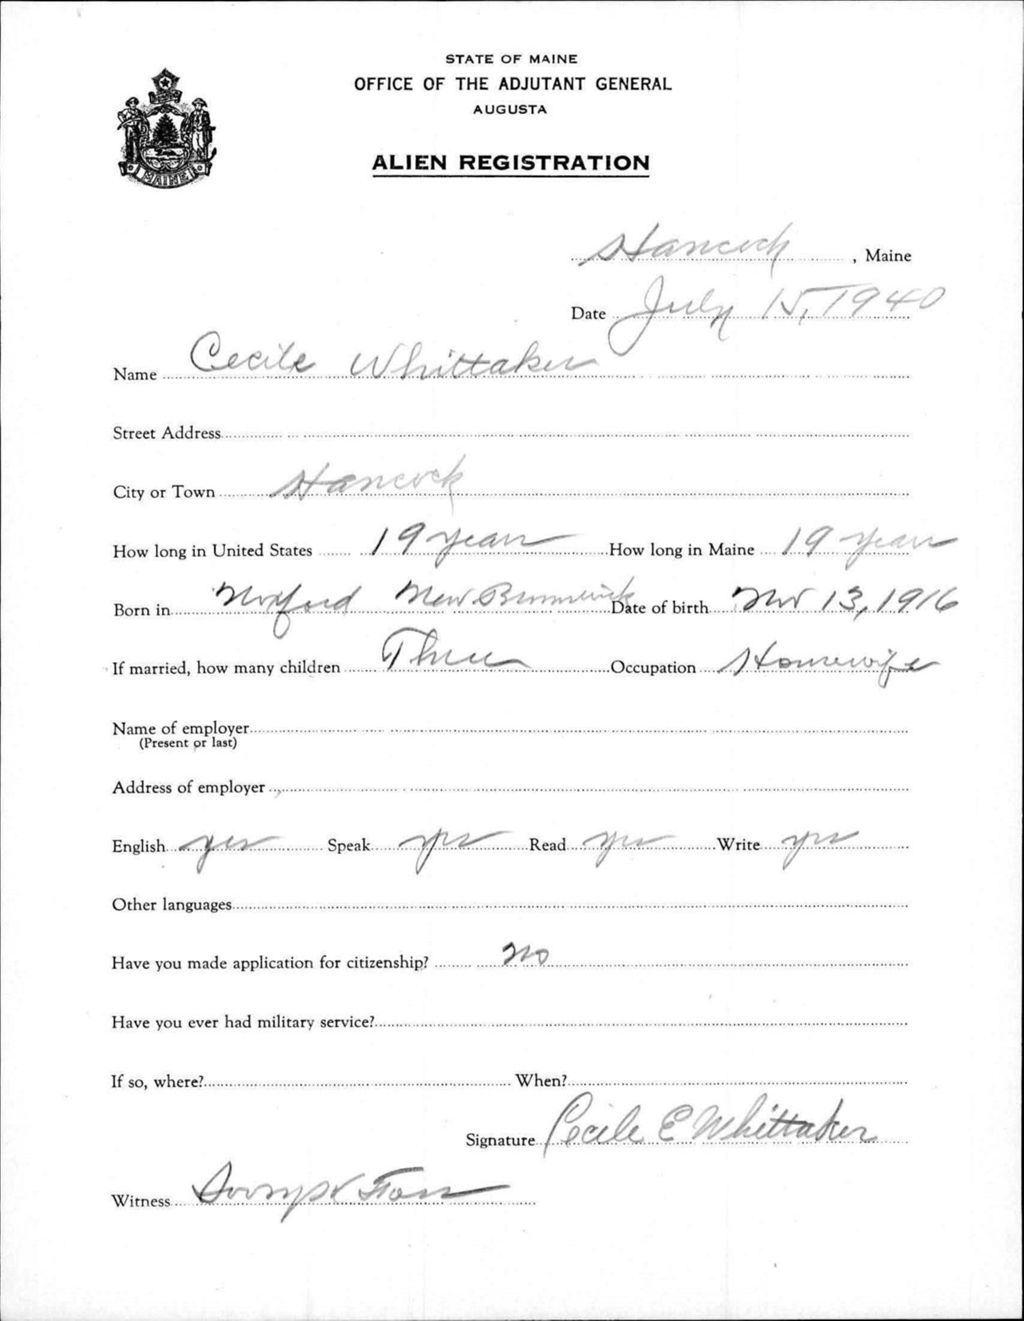 STATE OF MAINE
OFFICE OF THE ADJUTANT GENERAL
AUGUSTA
ALIEN REGISTRATION
MAINE
Hancock, Maine
Date July 15, 1940
Name Cecile Whittaker
Street Address
City or Town Hancock
How long in United States 19 years How long in Maine 19 years
Born in New Brunswick Date of birth Nov 13, 1916
If married, how many children Three Occupation Housewife
Name of employer
(Present or last)
Address of employer
English yes Speak yes Read yes Write yes
Other languages
Have you made application for citizenship? no
Have you ever had military service?
If so, where? When?
Signature Cecile E Whittaker
Witness